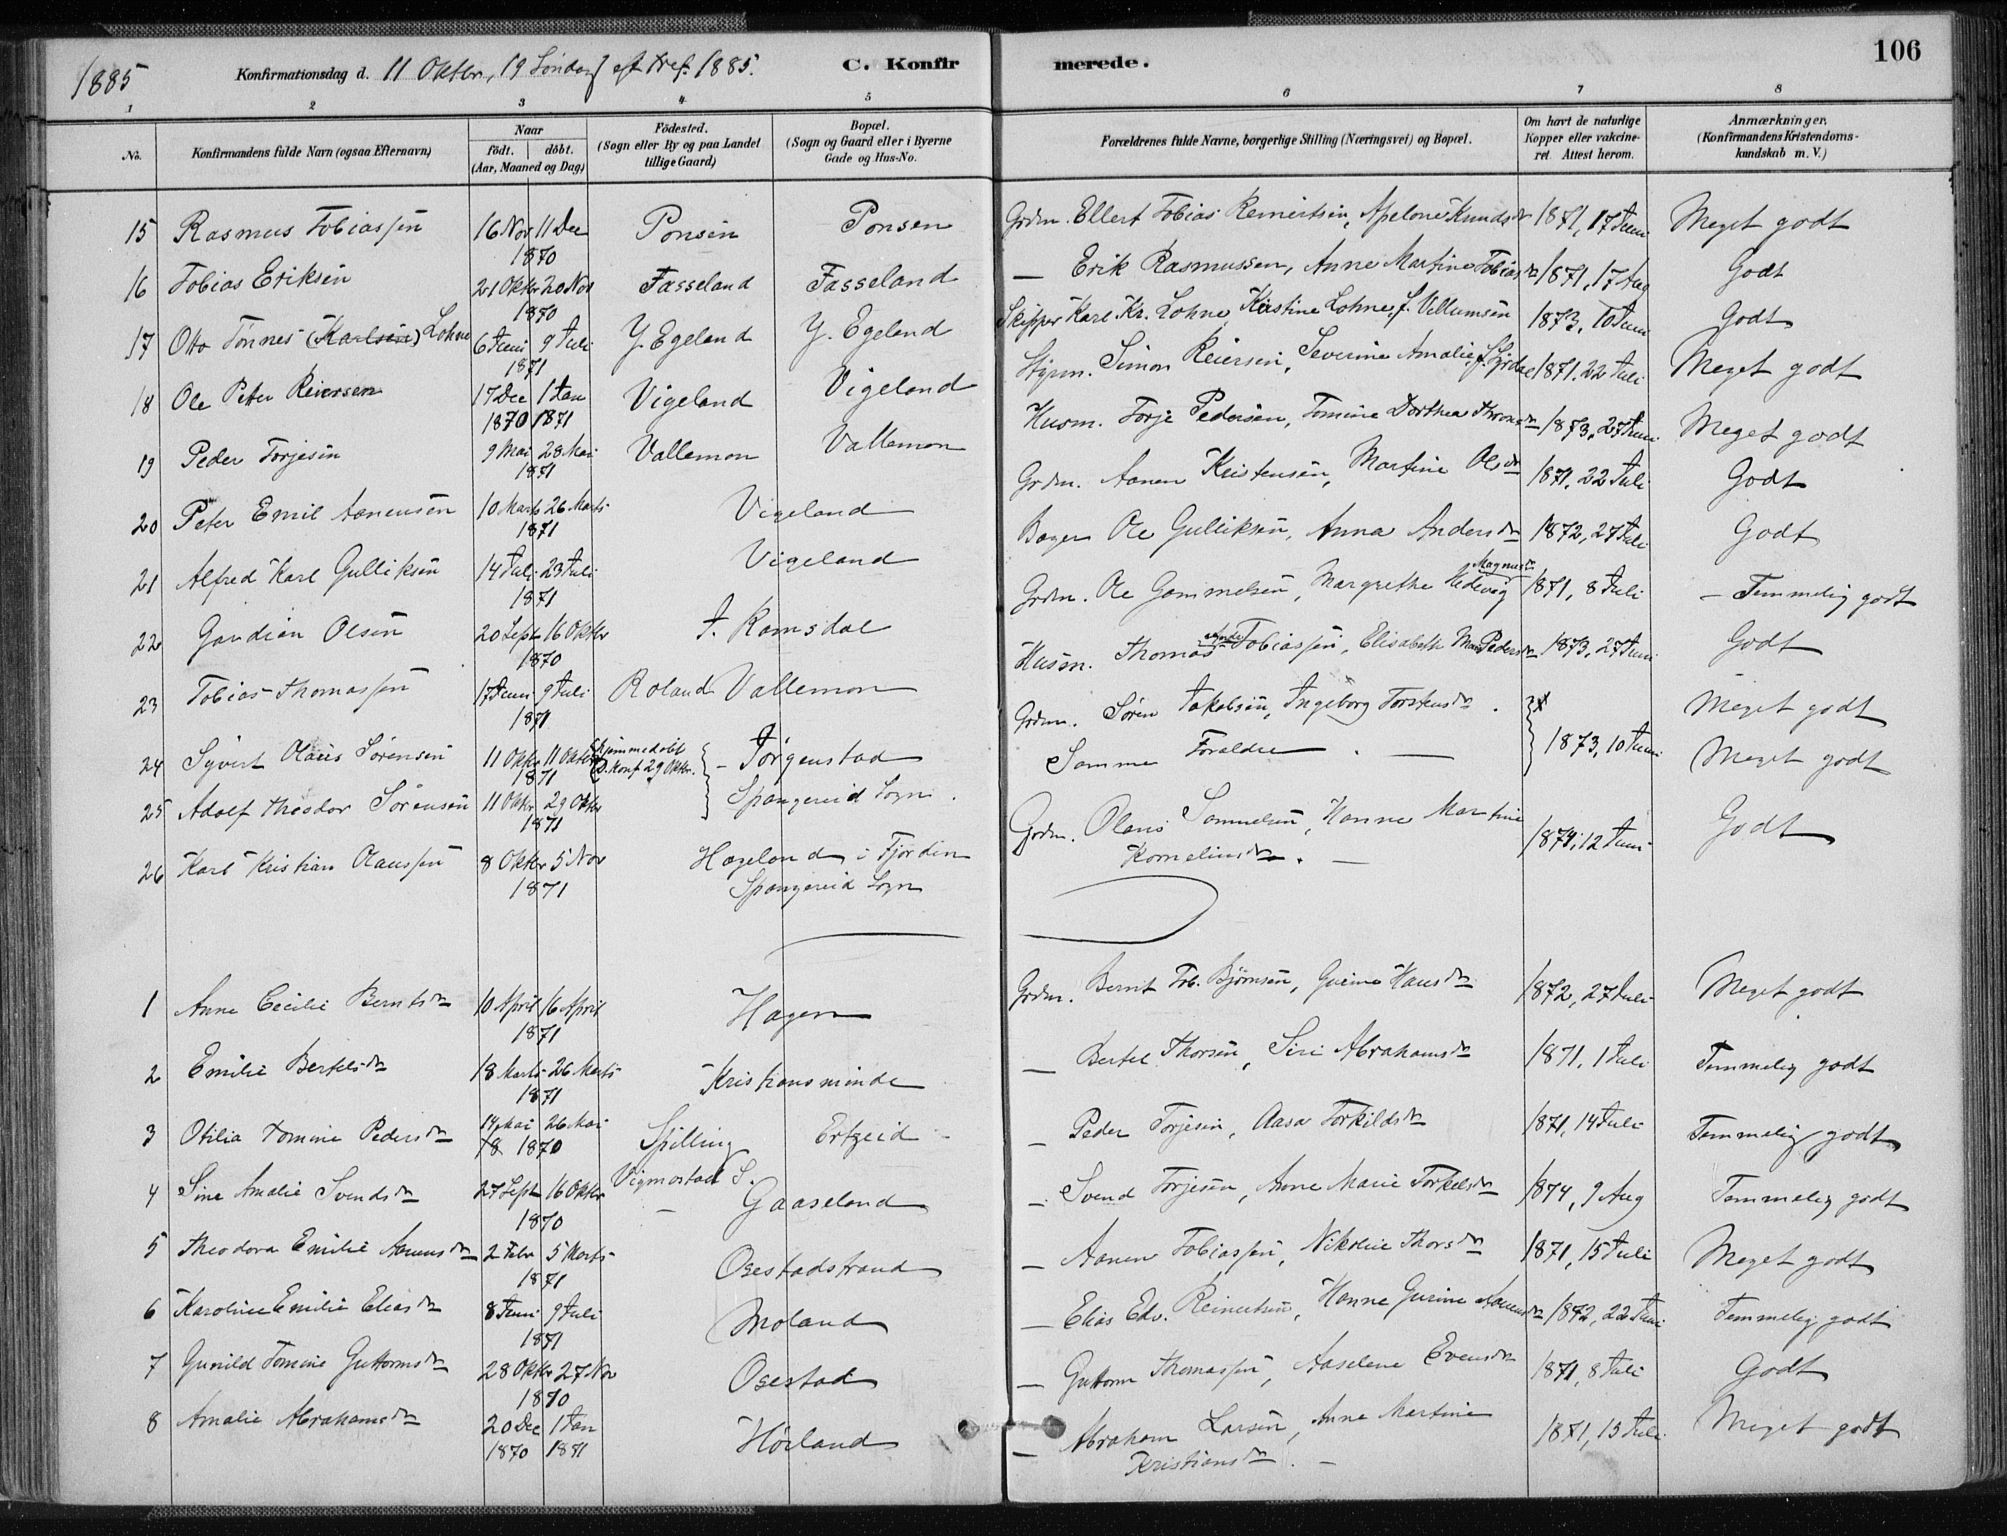 1885
Konfirmationsdag d. 11 Oktbr, 19 Søndag eft tref. 1885.
C. Konfirmerede.
106
1 2 3 4 5 6 7 8
No.
Konfirmandens fulde Navn (ogsaa Efternavn)
Naar
født. døbt.
(Aar, Maaned og Dag)
Fødested.
(Sogn eller By og paa Landet
tillige Gaard)
Bopæl.
(Sogn og Gaard eller i Byerne
Gade og Hus-No.
Forældrenes fulde Navne, borgerlige Stilling (Næringsvei) og Bopæl.
Om havt de naturlige
Kopper eller vakcine-
ret. Attest herom.
Anmærkninger.
(Konfirmandens Kristendoms-
kundskab m. V.)
15 Rasmus Tobiassen 16 Nov 11 Dec 1870 Ponsen Ponsen Grdm. Ellert Tobias Reinertsen, Apelone Knudsdr 1871, 17 Juni Meget godt
16 Tobias Eriksen 21 Oktbr 20 Nov 1870 Fasseland Fasseland — Erik Rasmussen, Anne Martine Tobiasdr 1871, 17 Aug Godt
17 Otto Tønnes (Karlsen) Lohne 6 Juni 9 Juli 1871 Y. Egeland Y. Egeland Skipper Karl Kr. Lohne, Kristine Lohne f. Villumsen 1873, 10 Juni Godt
18 Ole Petter Reiersen 17 Dec 1 Jan 1870 1871 Vigeland Vigeland Styrm. Simon Reiersen, Severine Amalie f. 1871, 22 Juli Meget godt
19 Peder Torjesen 9 Mai 28 Mai 1871 Vallemon Vallemon Husm. Torje Pedersen, Tomine Dorthea 1873, 27 Juni Meget godt
20 Peter Emil Aanensen 10 Marts 26 Marts 1871 Vigeland Grdm. Aanen Kristensen, Martine Olsdr 1871, 22 Juli Godt
21 Alfred Karl Gulliksen 14 Juli 23 Juli 1871 Vigeland Bager Ole Gulliksen, Anna Andersdr 1872, 27 Juli Godt
22 Gardian Olsen 20 Septr 16 Oktbr 1870 I. Ramsdal Grdm. Ole Gammelsen, Margrethe Hedevig Magnusdr 1871, 8 Juli — Temmelig godt
23 Tobias Thomassen 17 Juni 9 Juli 1871 Roland Vallemon Husm. Thomas Tobiassen, Elisabeth Mar Pedersdr 1873, 27 Juni Godt
24 Syvert Olaus Sørensen 11 Oktbr 11 Oktbr 1871 (Hjemmedøbt D. konf 29 Oktbr. — Jørgenstad Grdm. Søren Jakobsen, Ingeborg Torstensdr. Meget godt
25 Adolf Theodor Sørensen 11 Oktbr 29 Oktbr 1871 Spangereid Sogn. Samme Forældre. — 1873, 10 Juni Meget godt
26 Karl Kristian Olaussen 8 Oktbr 5 Nov 1871 Hageland i Fjorden Spangereid Sogn Grdm. Olaus Samuelsen, Hanne Martine Korneliusdr. — 1874, 12 Juni Godt
1 Anne Cecilie Berntsdr 10 April 16 April 1871 Hagen Grdm. Bernt Tob. Bjørnsen, Gurine Hansdr 1872, 27 Juli Meget godt
2 Emilie Bertelsdr 18 Marts 26 Marts 1871 Kristiansminde — Bertel Thorsen, Siri Abrahamsdr 1871, 1 Juli Temmelig godt
3 Otilia Tomine Pedersdr 14 Mai 26 Mai 18 1870 Spilling Ertzeid — Peder Torjesen, Aasa Torkildsdr 1871, 14 Juli Temmelig godt
4 Sine Amalie Svendsdr 27 Septr 16 Oktbr 1870 Vigmostad S. — Gaaseland — Svend Torjesen, Anne Marie Torkelsdr 1874, 9 Aug Temmelig godt
5 Theodora Emilie Aanensdr 2 Febr 5 Marts 1871 Osestadstrand — Aanen Tobiassen, Nikoline Thorsdr 1871, 15 Juli Meget godt
6 Karoline Emilie Eliasdr 8 Juni 9 Juli 1871 Moland — Elias Edv. Reinertsen, Hanne Gurine Aanensdr 1872, 22 Juni Temmelig godt
7 Gunild Tomine Guttormsdr 28 Oktbr 27 Nov 1870 Osestad — Guttorm Thomassen, Aaselene Evensdr 1871, 8 Juli Godt
8 Amalie Abrahamsdr 20 Dec 1 Jan 1870 1871 Høiland — Abraham Larsen, Anne Martine Kristiansdr. — 1871, 15 Juli Meget godt